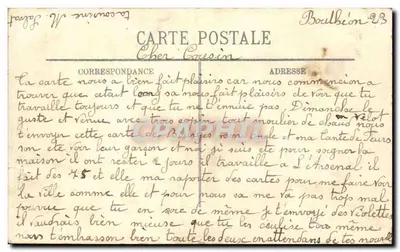 Boulhéon 23
ta cousine M. Salvat
CARTE POSTALE
Cher Cousin
CORRESPONDANCE
ADRESSE
ta carte nous a bien fait plaisirs car nous commencion a
trouver que cetait long sa nous fait plaisirs de voir que tu
travaille toujours et que tu ne t'ennuie pas Dimanche le
guste et venue avec trois copin tout moulier de chaud nous
t'envoyer cette carte de mon oncle et ma tante de
son été voir leur garçon et moi j'si suis été pour soigner la
maison il ont rester 2 jours il travaille a L'Arsenal il
fait des 75 et elle ma raporter des cartes pour me faire voir
la ville comme elle et pour nous sa ne va pas trop mal
pourvue que tu en soie de même je t'envoye des violettes
il vaudrais bien mieuse que tu les ceuilse toi même
nous t'embrasson bien toute les deux en attendans de tes nouvelles